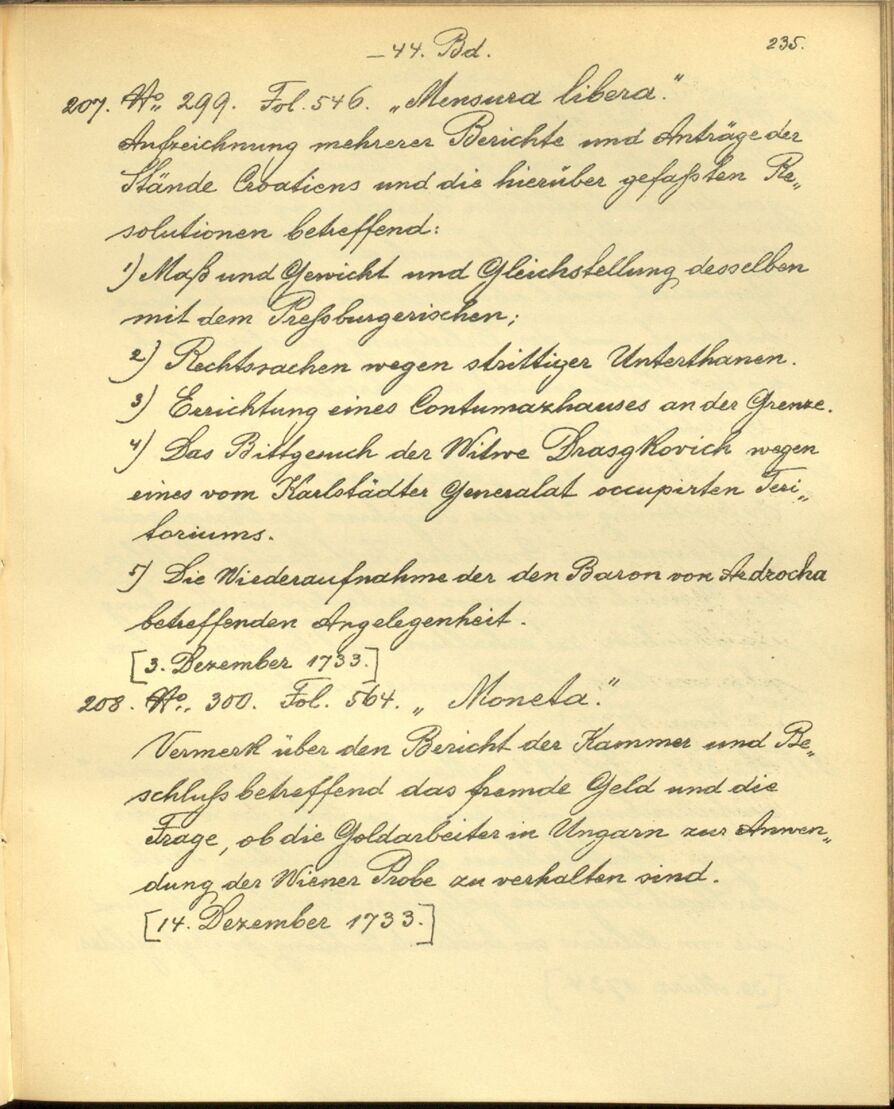 — 44. Bd.
235.
207. No. 299. Fol. 546. „Mensura libera."
Aufzeichnung mehrerer Berichte und Anträge der
Stände Croatiens und die hierüber gefaßten Re„
solutionen betreffend:
1) Maß und Gewicht und Gleichstellung desselben
mit dem Preßburgerischen;
2) Rechtssachen wegen strittiger Unterthanen.
3) Errichtung eines Contumazhauses an der Grenze.
4) Das Bittgesuch der Witwe Drasgkovich wegen
eines vom Karlstädter Generalat occupirten Teri„
toriums.
5) Die Wiederaufnahme der den Baron von Ardrocha
betreffenden Angelegenheit.
[3. Dezember 1733.]
208. No. 300. Fol. 564. „Moneta."
Vermerk über den Bericht der Kammer und Be„
schluß betreffend das fremde Geld und die
Frage, ob die Goldarbeiter in Ungarn zur Anwen„
dung der Wiener Probe zu verhalten sind.
[14. Dezember 1733.]